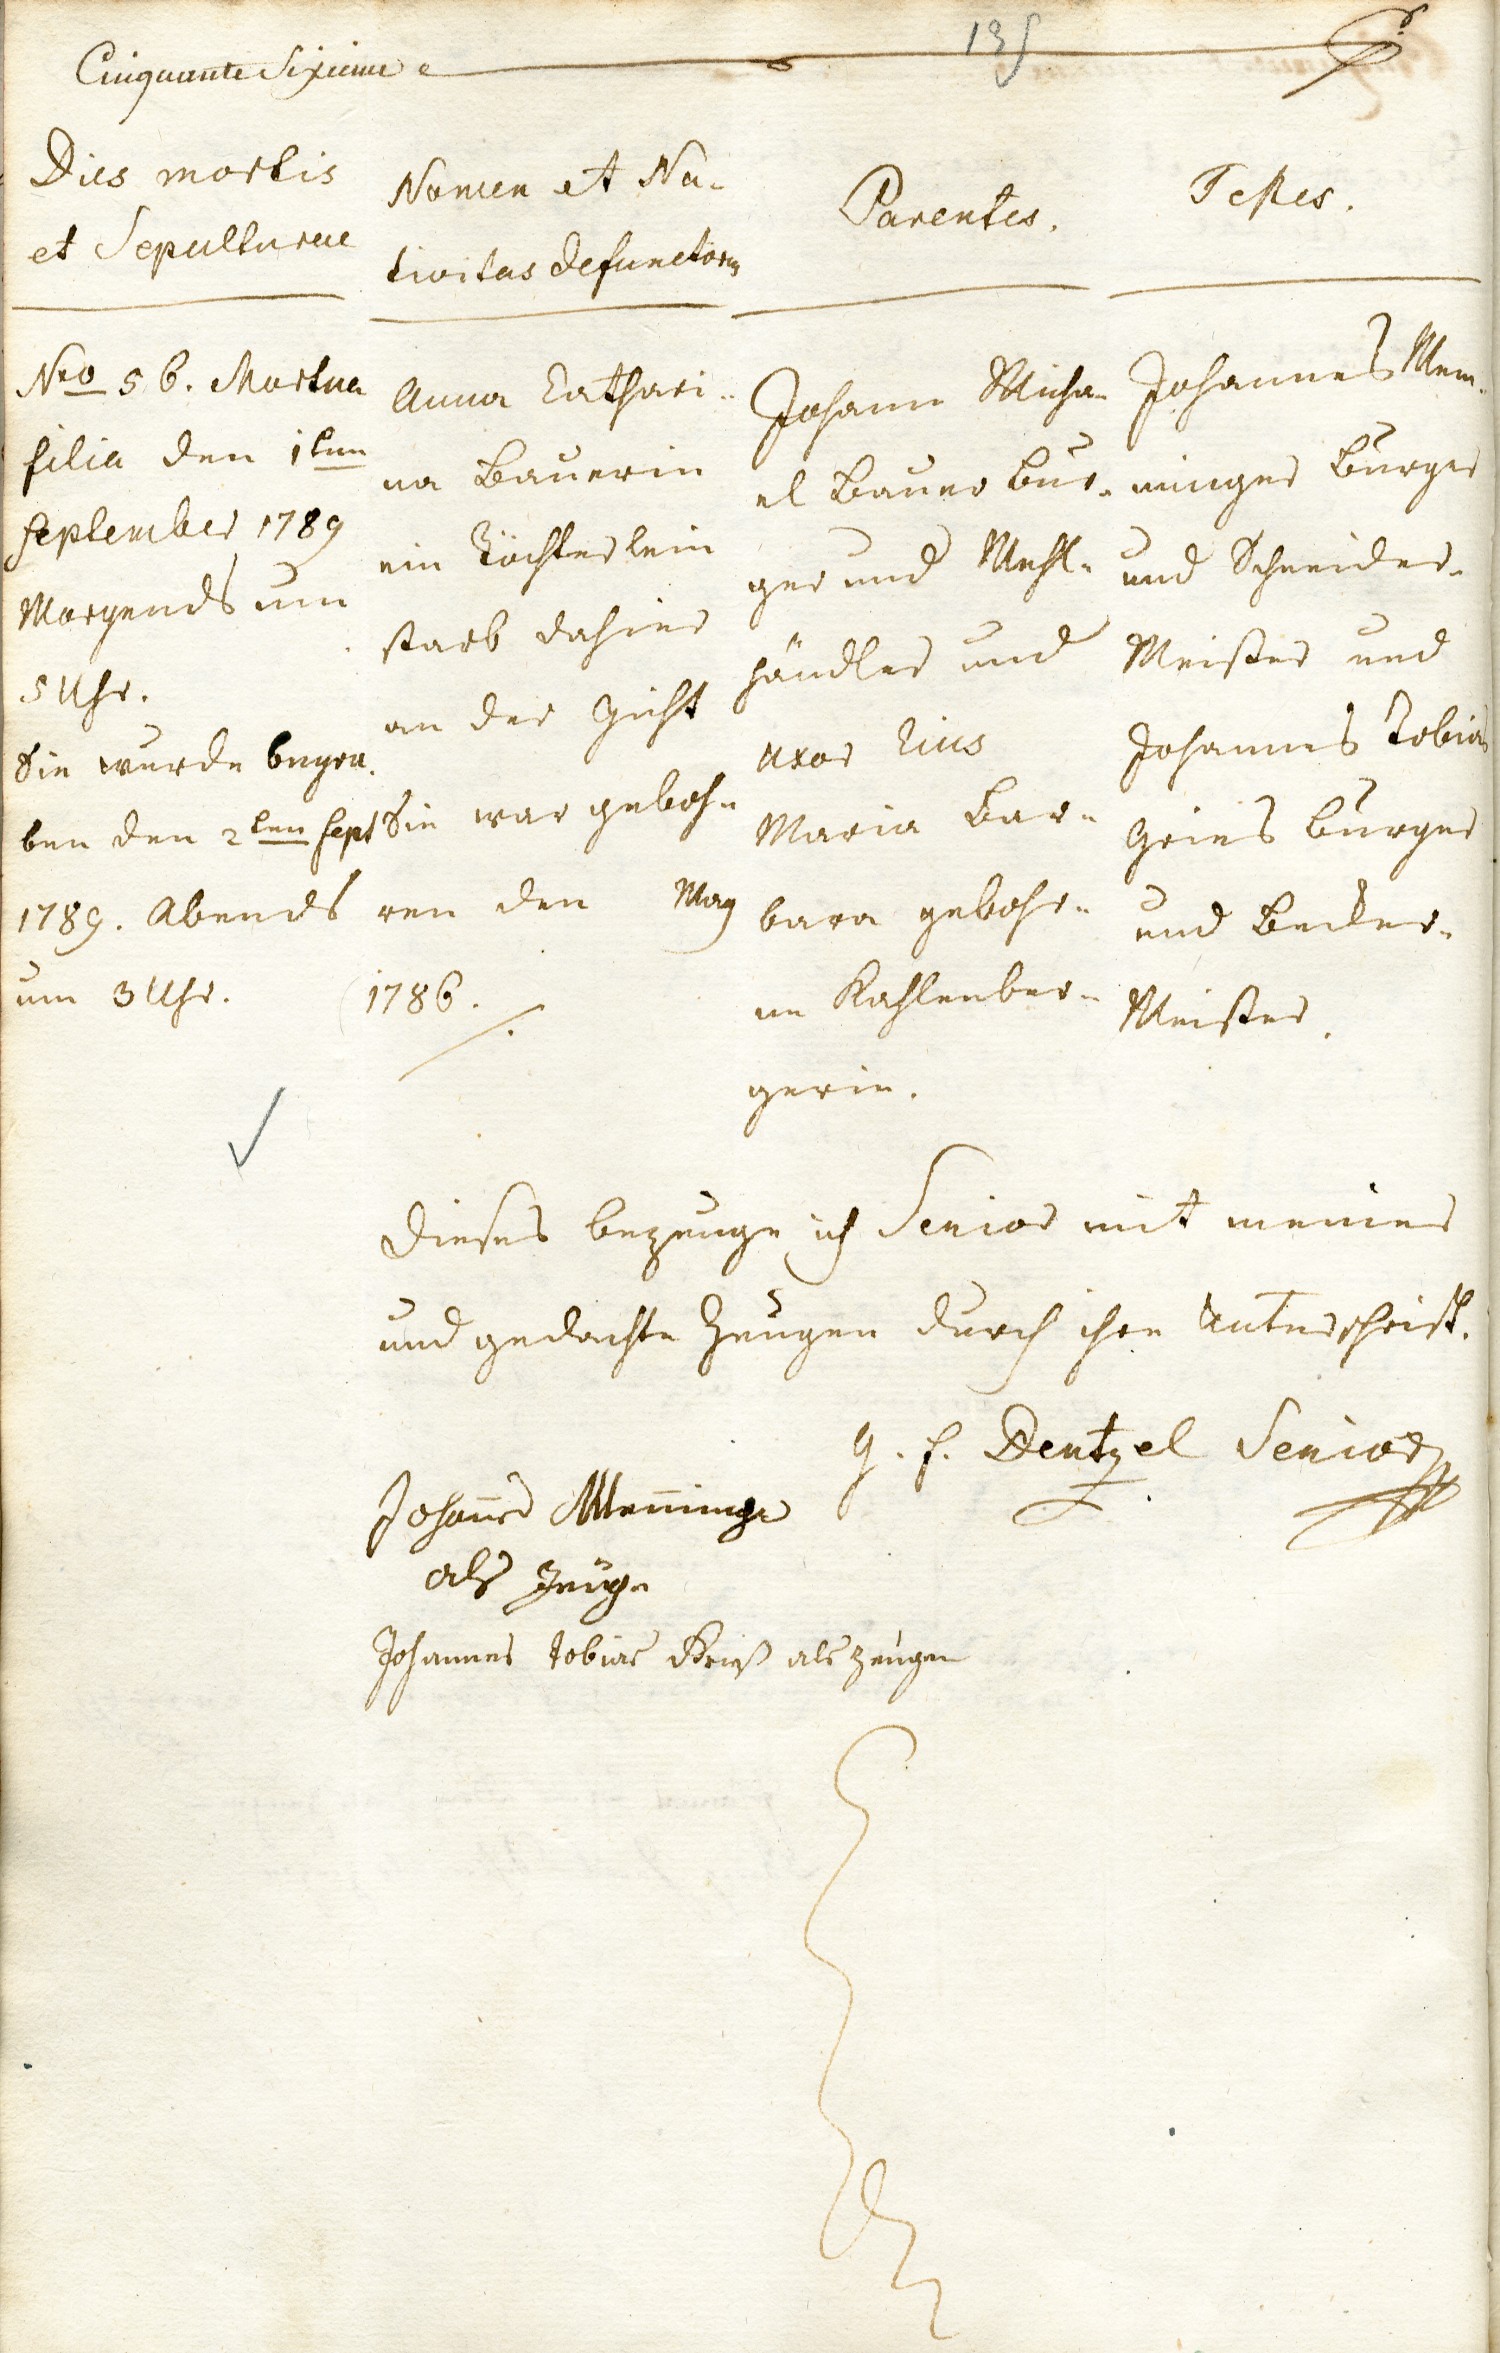 Cinquante Sixieme
135
Dies mortis
et Sepulturae
Nomen et Na-
tivitas defunctorum
Parentes.
Testes.
Nro 56. Mortua
filia den 1ten
September 1789
Morgends um
5 Uhr.
Sie wurde begra-
ben den 2ten Sept
1789. Abends
um 3 Uhr.
Anna Cathari-
na Bauerin
ein Töchterlein
starb dahier
an der Gicht
Sie war geboh-
ren den May
1786.
Johann Micha-
el Bauer Bur-
ger und Mehl-
händler und
uxor Eius
Maria Bar-
bara gebohr-
ne Kahlenber-
gerin.
Johannes Mem-
minger Burger
und Schneider-
Meister und
Johannes Tobias
Gries Burger
und Becker-
Meister.
Dieses bezeuge ich Senior mit meiner
und gedachte Zeugen durch ihre Unterschrift.
G. F. Dentzel Senior
Johannes Meminger
als Zeuge
Johannes Tobias Grieß als Zeugen